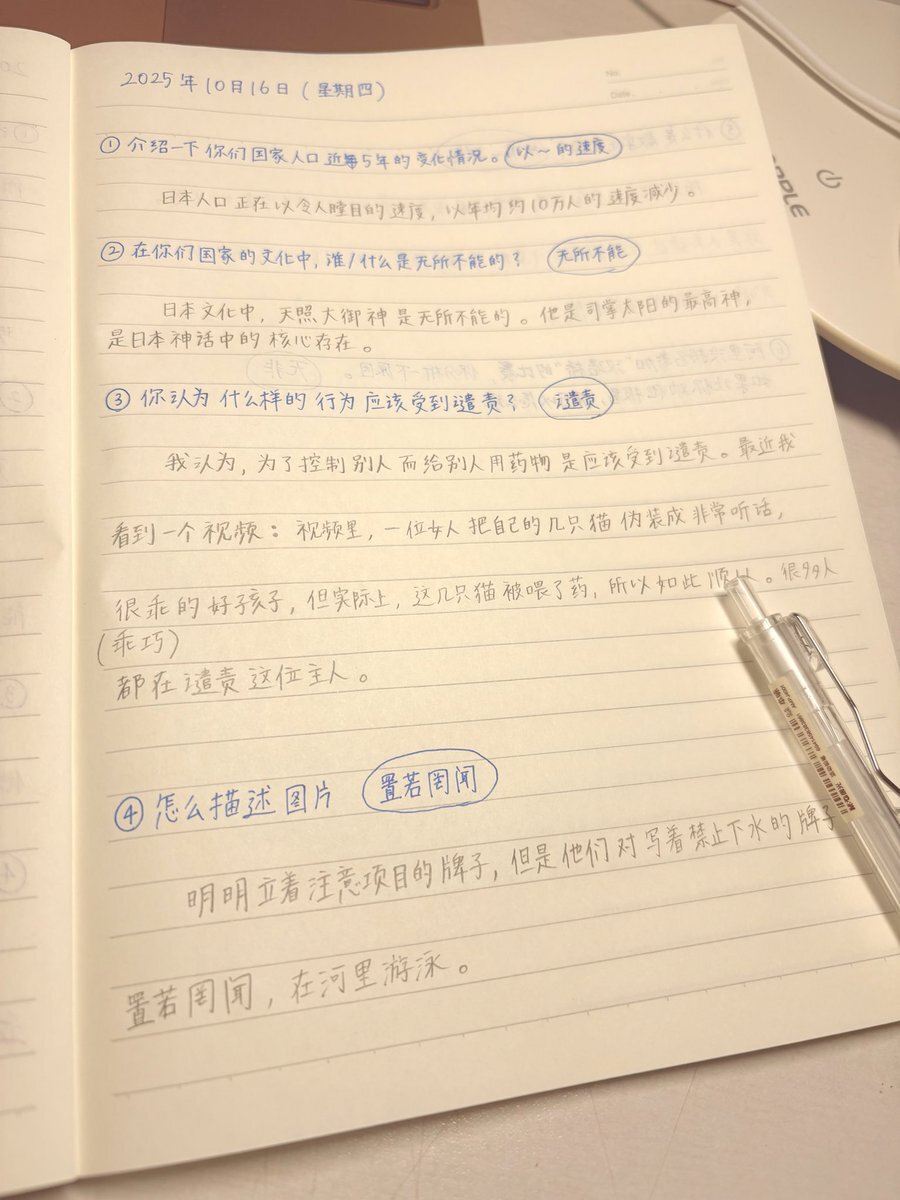 2025年10月16日(星期四)
No.
Date
① 介绍一下你们国家人口近5年的变化情况。 以~的速度
日本人口正在以令人瞠目的速度,以年均约10万人的速度减少。
② 在你们国家的文化中,谁/什么是无所不能的? 无所不能
日本文化中,天照大御神是无所不能的。他是司掌太阳的最高神,
是日本神话中的核心存在。
③ 你认为什么样的行为应该受到谴责? 谴责
我认为,为了控制别人而给别人用药物是应该受到谴责。最近我
看到一个视频:视频里,一位女人把自己的几只猫伪装成非常听话,
很乖的好孩子,但实际上,这几只猫被喂了药,所以如此顺从。很多人
(乖巧)
都在谴责这位主人。
④ 怎么描述图片 置若罔闻
明明立着注意项目的牌子,但是他们对写着禁止下水的牌子
置若罔闻,在河里游泳。